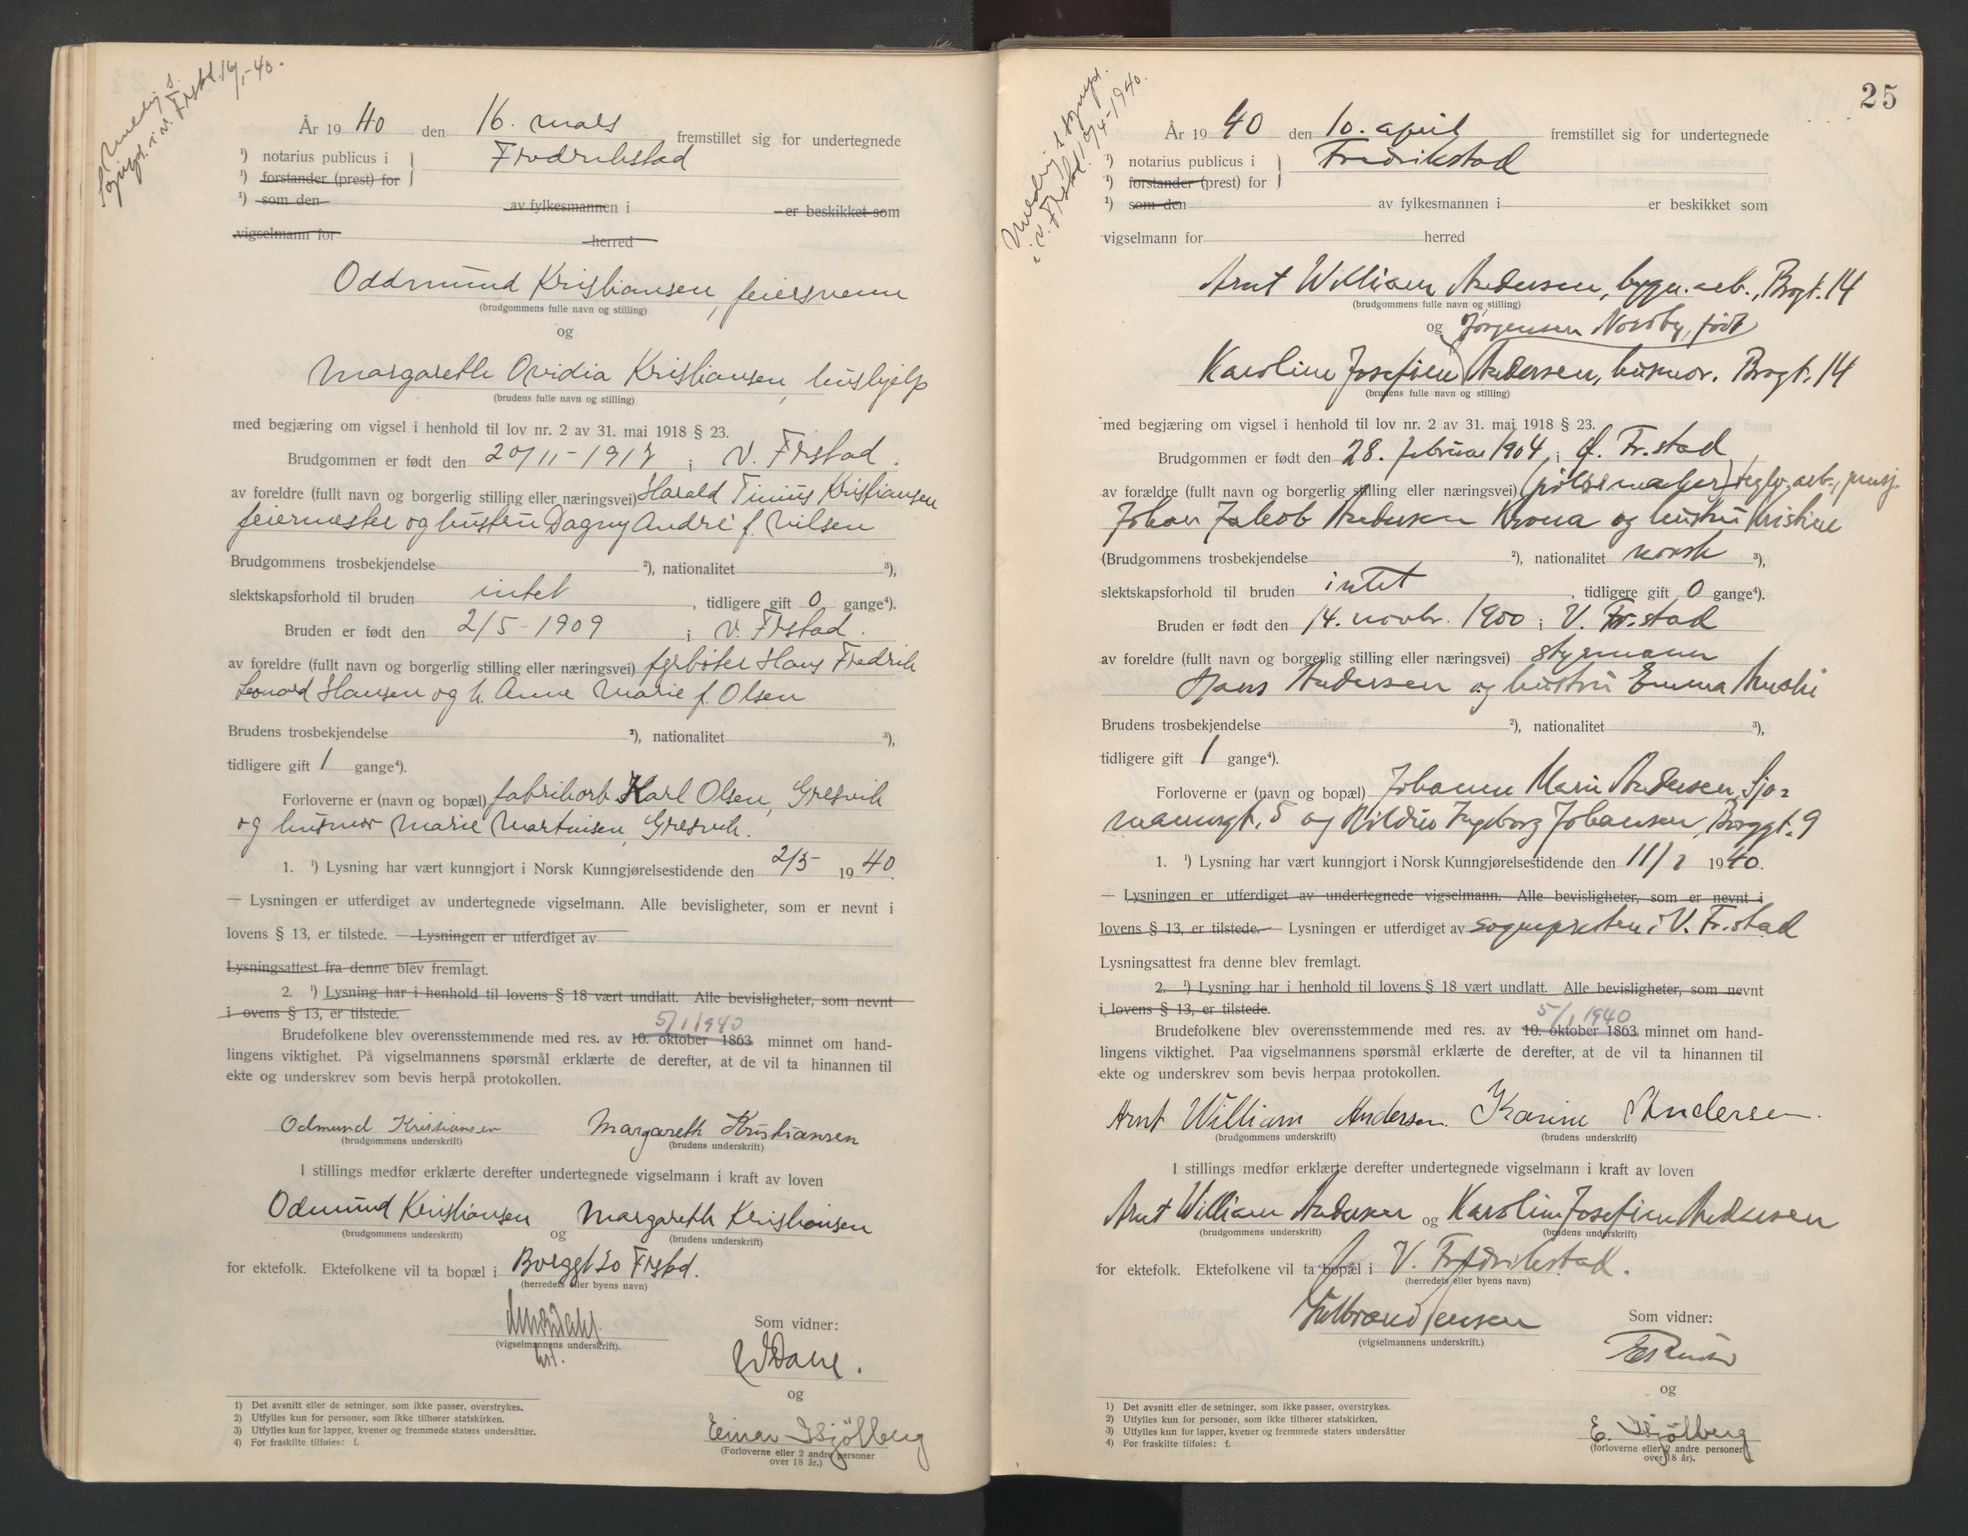 År 19 40 den 16. mars fremstillet sig for undertegnede
¹) notarius publicus i Fredrikstad
¹) forstander (prest) for
¹) som den av fylkesmannen i er beskikket som
vigselmann for herred
Oddmund Kristiansen, feiersvenn
(brudgommens fulle navn og stilling)
og
Margareth Ovidia Kristiansen, hushjelp
(brudens fulle navn og stilling)
med begjæring om vigsel i henhold til lov nr. 2 av 31. mai 1918 § 23.
Brudgommen er født den 20/11-1917 i V. Frstad.
av foreldre (fullt navn og borgerlig stilling eller næringsvei) Harald Tinius Kristiansen
feiermester og hustru Dagny André f. Nilsen
Brudgommens trosbekjendelse ²), nationalitet ³),
slektskapsforhold til bruden intet, tidligere gift 0 gange⁴).
Bruden er født den 2/5-1909 i V. Frstad.
av foreldre (fullt navn og borgerlig stilling eller næringsvei) fyrbøter Hans Fredrik
Leonard Hansen og h. Anne Marie f. Olsen
Brudens trosbekjendelse ²), nationalitet ³),
tidligere gift 1 gange⁴).
Forloverne er (navn og bopæl) fabrikarb Karl Olsen, Gresvik
og husmor Marie Martinsen, Gresvik.
1. ¹) Lysning har vært kunngjort i Norsk Kunngjørelsestidende den 2/3 19 40.
— Lysningen er utferdiget av undertegnede vigselmann. Alle bevisligheter, som er nevnt i
lovens § 13, er tilstede. — Lysningen er utferdiget av
Lysningsattest fra denne blev fremlagt.
2. ¹) Lysning har i henhold til lovens § 18 vært undlatt. Alle bevisligheter, som nevnt
i ovens § 13, er tilstede.
5/1 1940
Brudefolkene blev overensstemmende med res. av 10. oktober 1863 minnet om hand-
lingens viktighet. På vigselmannens spørsmål erklærte de derefter, at de vil ta hinannen til
ekte og underskrev som bevis herpå protokollen.
Odmund Kristiansen Margareth Kristiansen
(brudgommens underskrift) (brudens underskrift)
I stillings medfør erklærte derefter undertegnede vigselmann i kraft av loven
Odmund Kristiansen og Margareth Kristiansen
(brudgommens underskrift) (brudens underskrift)
for ektefolk. Ektefolkene vil ta bopæl i Borggt 20 Frstad.
(herredets eller byens navn)
(vigselmannens underskrift).
Som vidner:
og
Einar Kjølberg
(Forloverne eller 2 andre personer
over 18 år.)
1) Det avsnitt eller de setninger, som ikke passer, overstrykes.
2) Utfylles kun for personer, som ikke tilhører statskirken.
3) Utfylles kun for lapper, kvener og fremmede staters undersåtter.
4) For fraskilte tilføies: f.
25
År 19 40 den 10. april fremstillet sig for undertegnede
¹) notarius publicus i Fredrikstad
¹) forstander (prest) for
¹) som den av fylkesmannen i er beskikket som
vigselmann for herred
Arnt William Andersen, bygn. arb., Brogt. 14
(brudgommens fulle navn og stilling)
og Jørgensen Nordby, født
Karoline Josefine Andersen, husmor. Brogt. 14
(brudens fulle navn og stilling)
med begjæring om vigsel i henhold til lov nr. 2 av 31. mai 1918 § 23.
Brudgommen er født den 28. februar 1904 i Ø. Fr.stad
av forældre (fullt navn og borgerlig stilling eller næringsvei)
Johan Jakob Andersen Krona og hustru Kristine
(Brudgommens trosbekjendelse ²), nationalitet norsk ³),
slektskapsforhold til bruden intet, tidligere gift 0 gange⁴).
Bruden er født den 14. novbr. 1900 i V. Fr.stad
av foreldre (fullt navn og borgerlig stilling eller næringsvei) styrmann
Hans Andersen og hustru Emma
Brudens trosbekjendelse ²), nationalitet ³),
tidligere gift 1 gange⁴).
Forloverne er (navn og bopæl) Johanne Marie Andersen, Sjø-
mannsgt. 5 og Hildur Ingeborg Johansen, Borggt. 9
1. ¹) Lysning har vært kunngjort i Norsk Kunngjørelsestidende den 11/ 1940.
— Lysningen er utferdiget av undertegnede vigselmann. Alle bevisligheter, som er nevnt i
lovens § 13, er tilstede. — Lysningen er utferdiget av sogneprsten i V. Fr.stad
Lysningsattest fra denne blev fremlagt.
2. ¹) Lysning har i henhold til lovens § 18 vært undlatt. Alle bevisligheter, som nevnt
i lovens § 13, er tilstede.
5/1 1940
Brudefolkene blev overensstemmende med res. av 10. oktober 1863 minnet om hand-
lingens viktighet. Paa vigselmannens spørsmål erklærte de derefter, at de vil ta hinannen til
ekte og underskrev som bevis herpaa protokollen.
Arnt William Andersen. Karine Andersen.
(brudgommens underskrift) (brudens underskrift)
I stillings medfør erklærte derefter undertegnede vigselmann i kraft av loven
Arnt William Andersen og Karoline Josefine Andersen
(brudgommens underskrift) (brudens underskrift)
for ektefolk. Ektefolkene vil ta bopæl i V. Fredrikstad.
(herredets eller byens navn)
Gulbrand Jensen
(vigselmannens underskrift.)
Som vidner:
og
E. Kjølberg
(forloverne eller 2 andre personer
over 18 år).
1) Det avsnitt eller de setninger, som ikke passer, overstrykes.
2) Utfylles kun for personer, som ikke tilhører statskirken.
3) Utfylles kun for lapper, kvener og fremmede staters undersåtter
4) For fraskilte tilføies: f.